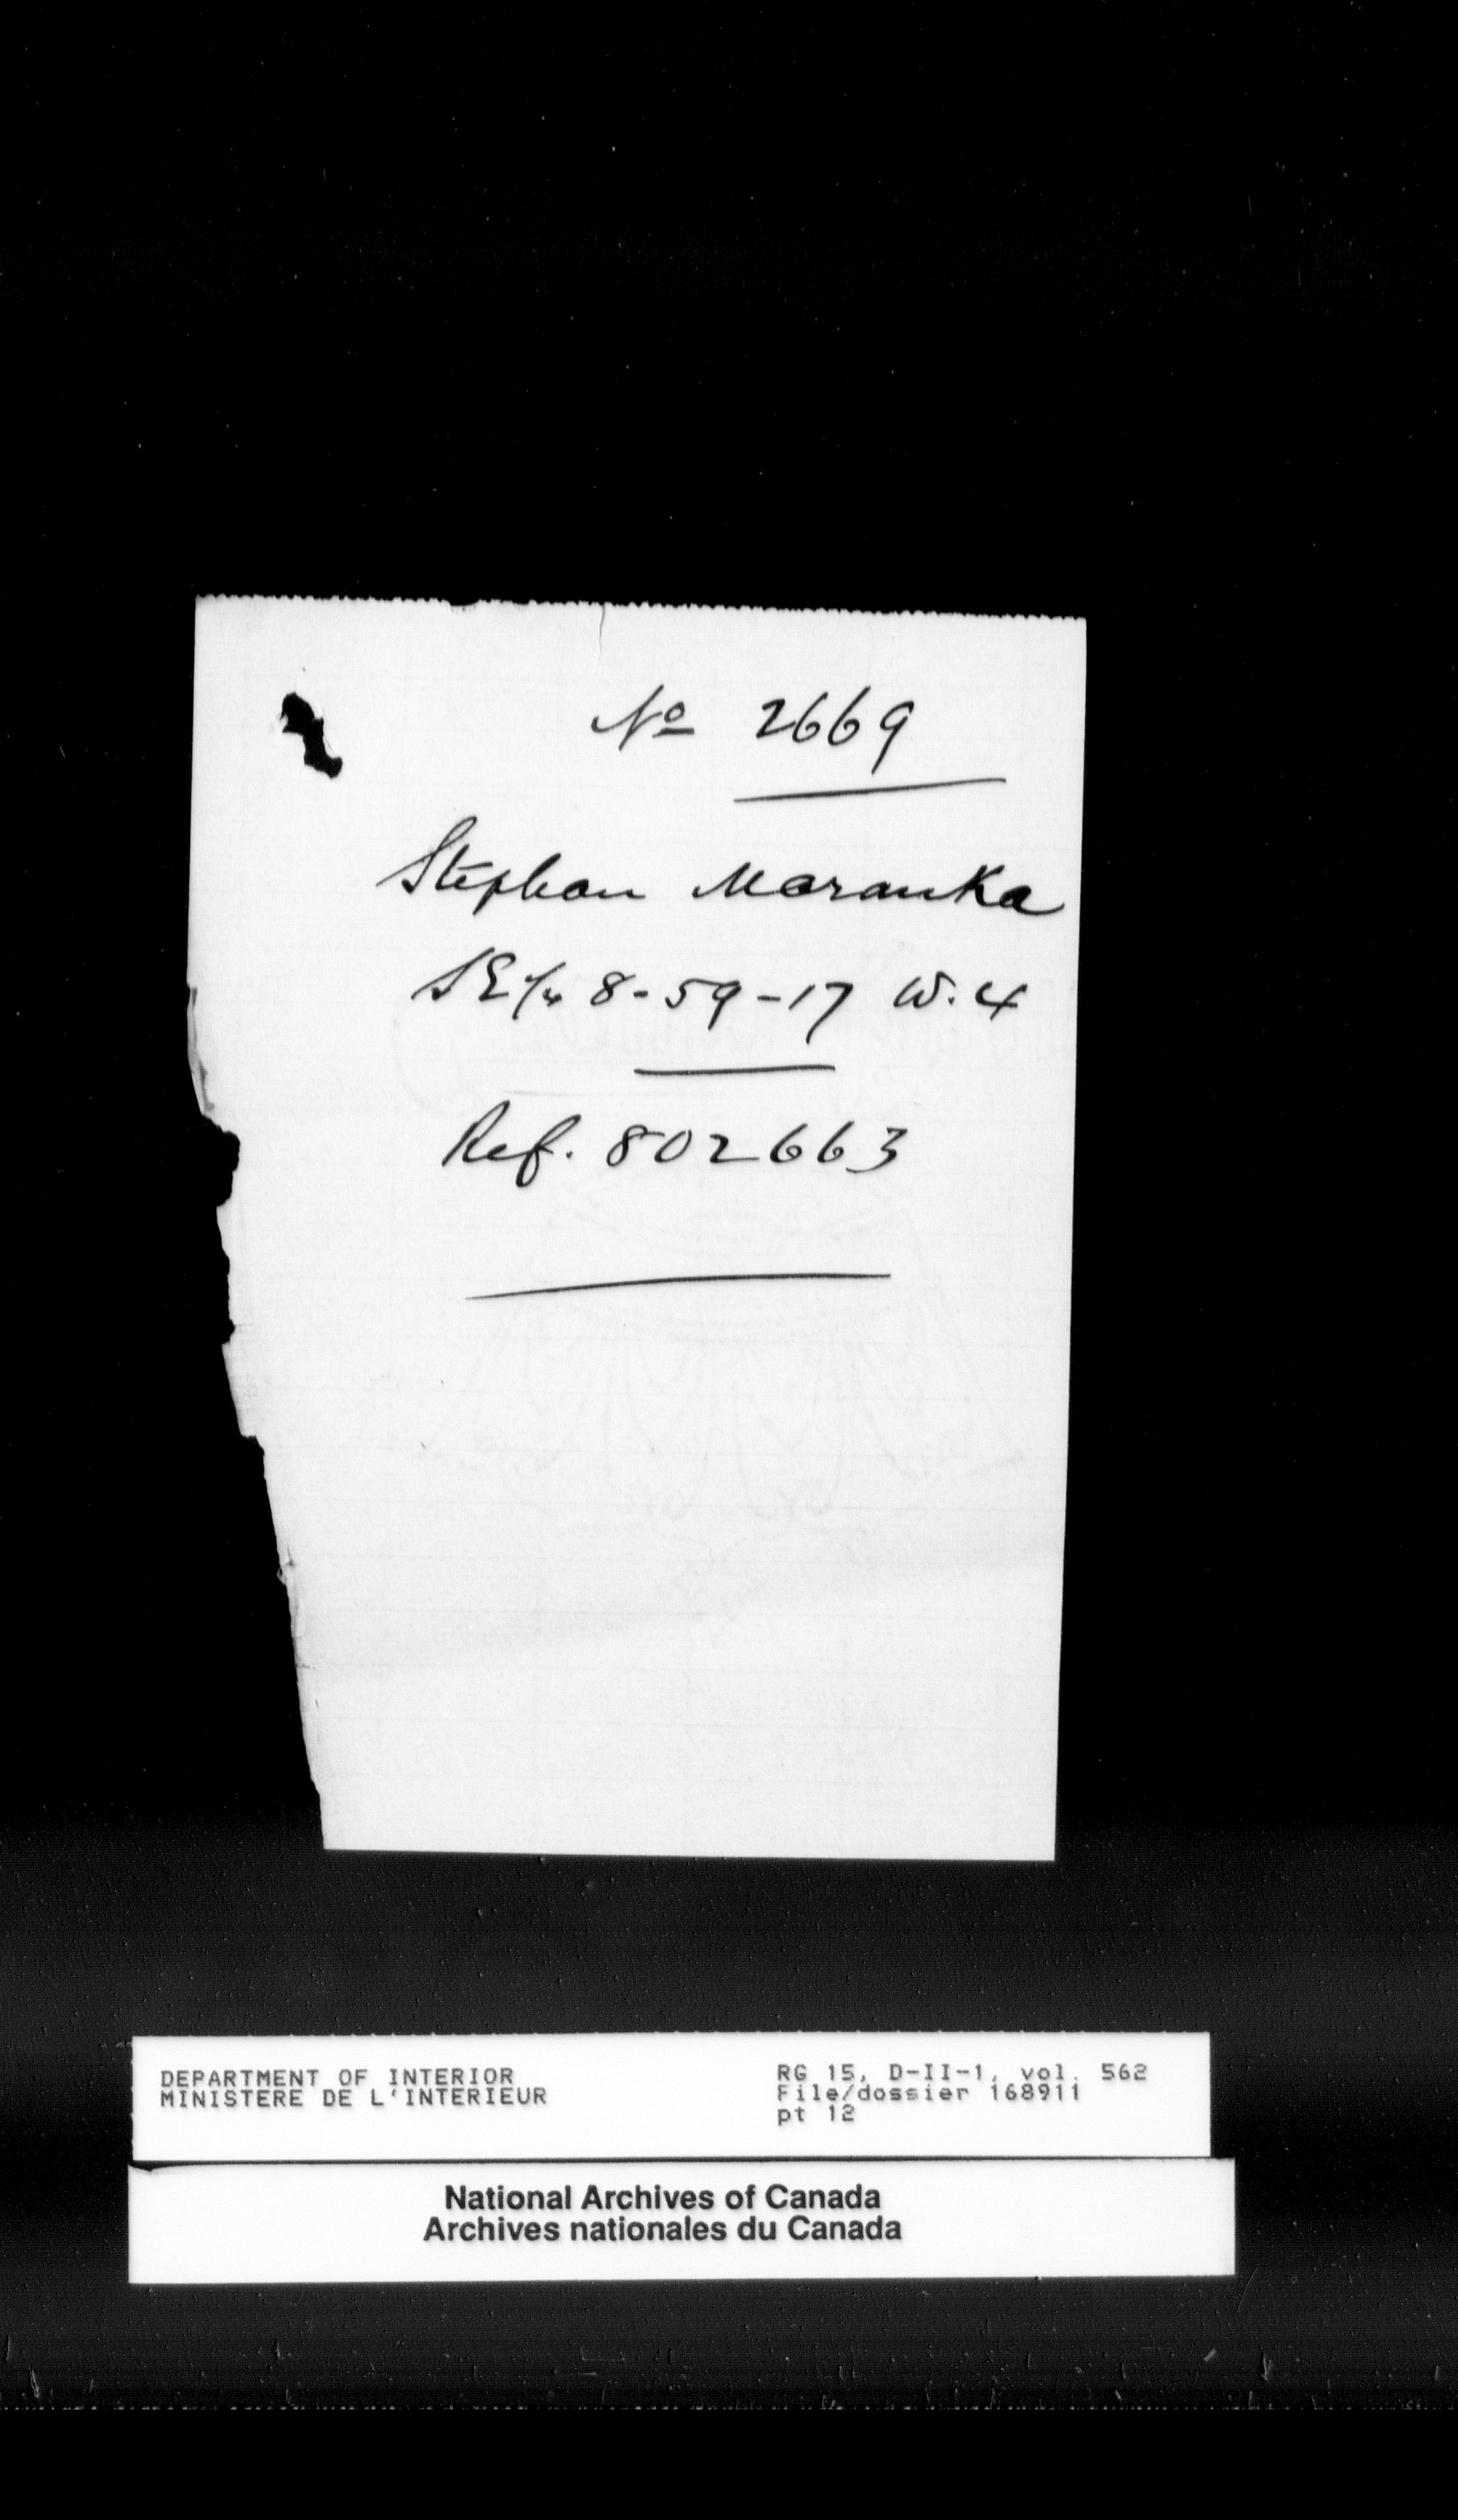 No 2669
Stephan Maranka
SE 1/4 8-59-17 W.4
Ref. 802663
DEPARTMENT OF INTERIOR
MINISTERE DE L'INTERIEUR
RG 15, D-II-1, vol. 562
File/dossier 168911
pt 12
National Archives of Canada
Archives nationales du Canada